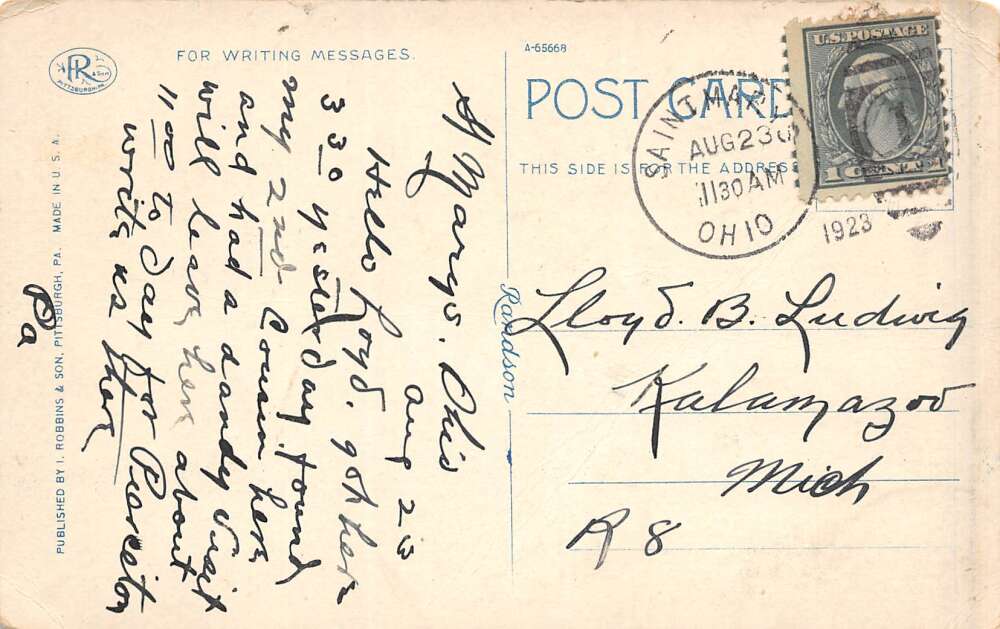 PR & SON
PITTSBURGH, PA.
FOR WRITING MESSAGES.
A-65668
POST CARD
THIS SIDE IS FOR THE ADDRESS
U.S. POSTAGE
1 CENT 1
SAINT MARYS
AUG 23
1130 AM
OHIO
1923
PUBLISHED BY I. ROBBINS & SON, PITTSBURGH, PA. MADE IN U. S. A.
Randson
St Marys. Ohio
Aug 23
Hello Loyd. got here
3 30 yesterday found
my 2nd Cousin here
and had a dandy visit
will leave here about
11 00 to day for
write us there
Pa
Lloyd. B. Ludwig
Kalamazoo
Mich
R 8